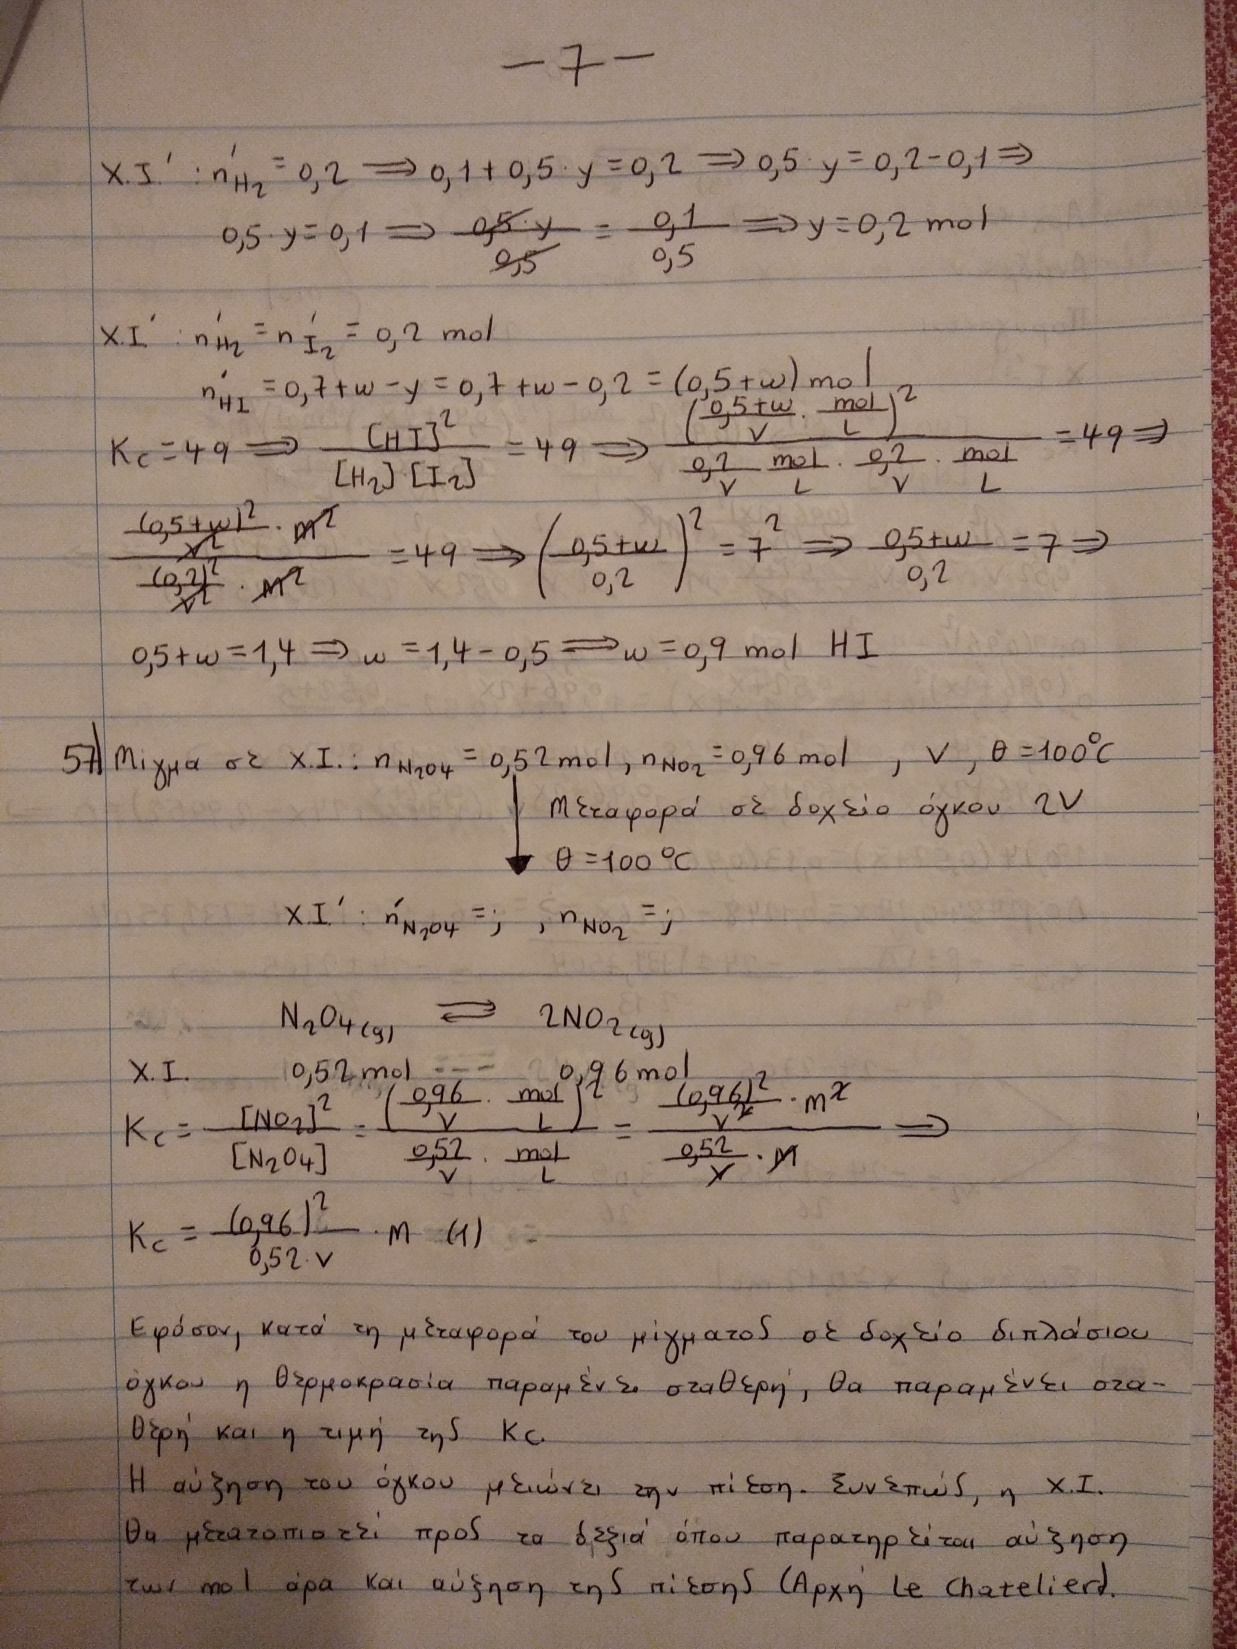 -7-
Χ.Ι.' : n'H₂ = 0,2 ⟹ 0,1+0,5·y = 0,2 ⟹ 0,5·y = 0,2-0,1 ⟹
0,5·y = 0,1 ⟹ 0,5·y/0,5 = 0,1/0,5 ⟹ y = 0,2 mol
Χ.Ι.' : n'H₂ = n'I₂ = 0,2 mol
n'HI = 0,7+w-y = 0,7+w-0,2 = (0,5+w) mol
Kc = 49 ⟹ [HI]²/[H₂]·[I₂] = 49 ⟹ (0,5+w/V · mol/L)² / 0,2/V mol/L · 0,2/V · mol/L = 49 ⟹
(0,5+w)²/V² · M² / (0,2)²/V² · M² = 49 ⟹ (0,5+w/0,2)² = 7² ⟹ 0,5+w/0,2 = 7 ⟹
0,5+w = 1,4 ⟹ w = 1,4-0,5 ⟹ w = 0,9 mol HI
57) Μίγμα σε Χ.Ι.: nN₂O₄ = 0,52 mol, nNO₂ = 0,96 mol , V , θ = 100°C
Μεταφορά σε δοχείο όγκου 2V
θ = 100°C
Χ.Ι.' : n'N₂O₄ = ; , nNO₂ = ;
N₂O₄(g) ⇌ 2NO₂(g)
Χ.Ι. 0,52 mol --- 0,96 mol
Kc = [NO₂]²/[N₂O₄] = (0,96/V · mol/L)² / 0,52/V · mol/L = (0,96)²/V² · M² / 0,52/V · M ⟹
Kc = (0,96)²/0,52·V · M (1)
Εφόσον, κατά τη μεταφορά του μίγματος σε δοχείο διπλάσιου
όγκου η θερμοκρασία παραμένει σταθερή, θα παραμένει στα-
θερή και η τιμή της Kc.
Η αύξηση του όγκου μειώνει την πίεση. Συνεπώς, η Χ.Ι.
θα μετατοπιστεί προς τα δεξιά όπου παρατηρείται αύξηση
των mol άρα και αύξηση της πίεσης (Αρχή Le Chatelier).